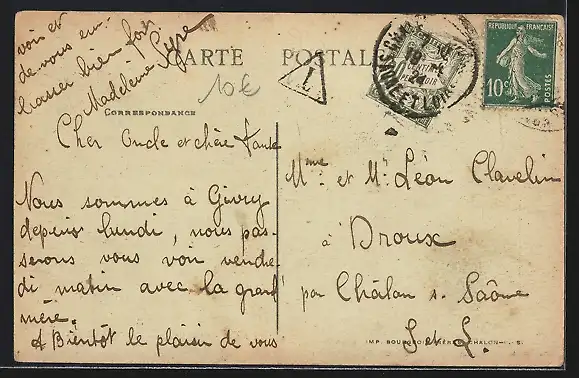 CARTE POSTALE
10€
T
RÉPUBLIQUE FRANÇAISE
10c
POSTES
CORRESPONDANCE
Cher Oncle et chère Tante
Nous sommes à Givry
depuis lundi, nous pas-
serons vous voir vendre-
di matin avec la grand
mère.
A Bientôt le plaisir de vous
voir et
de vous em-
brasser bien fort
Madeleine
Mme et Mr Léon Clavelin
à Droux
par Châlon s. Saône
S et L.
IMP. BOURGEOIS CHALON-S.-S.